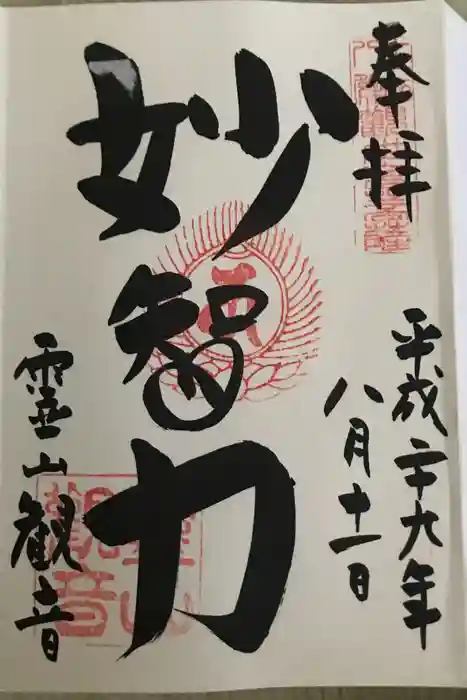 奉拝
平成二十九年
八月十一日
妙智力
霊山観音